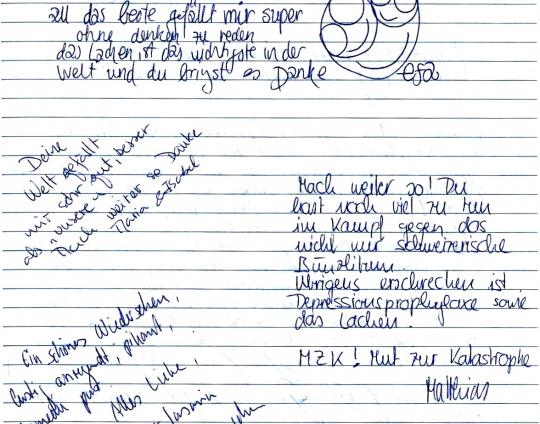 all das beste gefällt mir super
ohne denken zu reden
das Lachen ist das wichtigste in der
Welt und du bringst es Danke
efa
Deine
Welt gefällt
mir sehr gut, besser
als "unsere"
Mach weiter so Danke
Maria & Isabel
Mach weiter so! Du
hast noch viel zu tun
im Kampf gegen das
nicht nur schweizerische
Bünzlitum.
Übrigens erschrecken ist
Depressionsprophylaxe sowie
das Lachen.
MZK! Mut zur Katastrophe
Matthias
Ein schönes Wiedersehen,
lustig, anregend, pikant,
pur.
Alles Liebe,
Jasmin